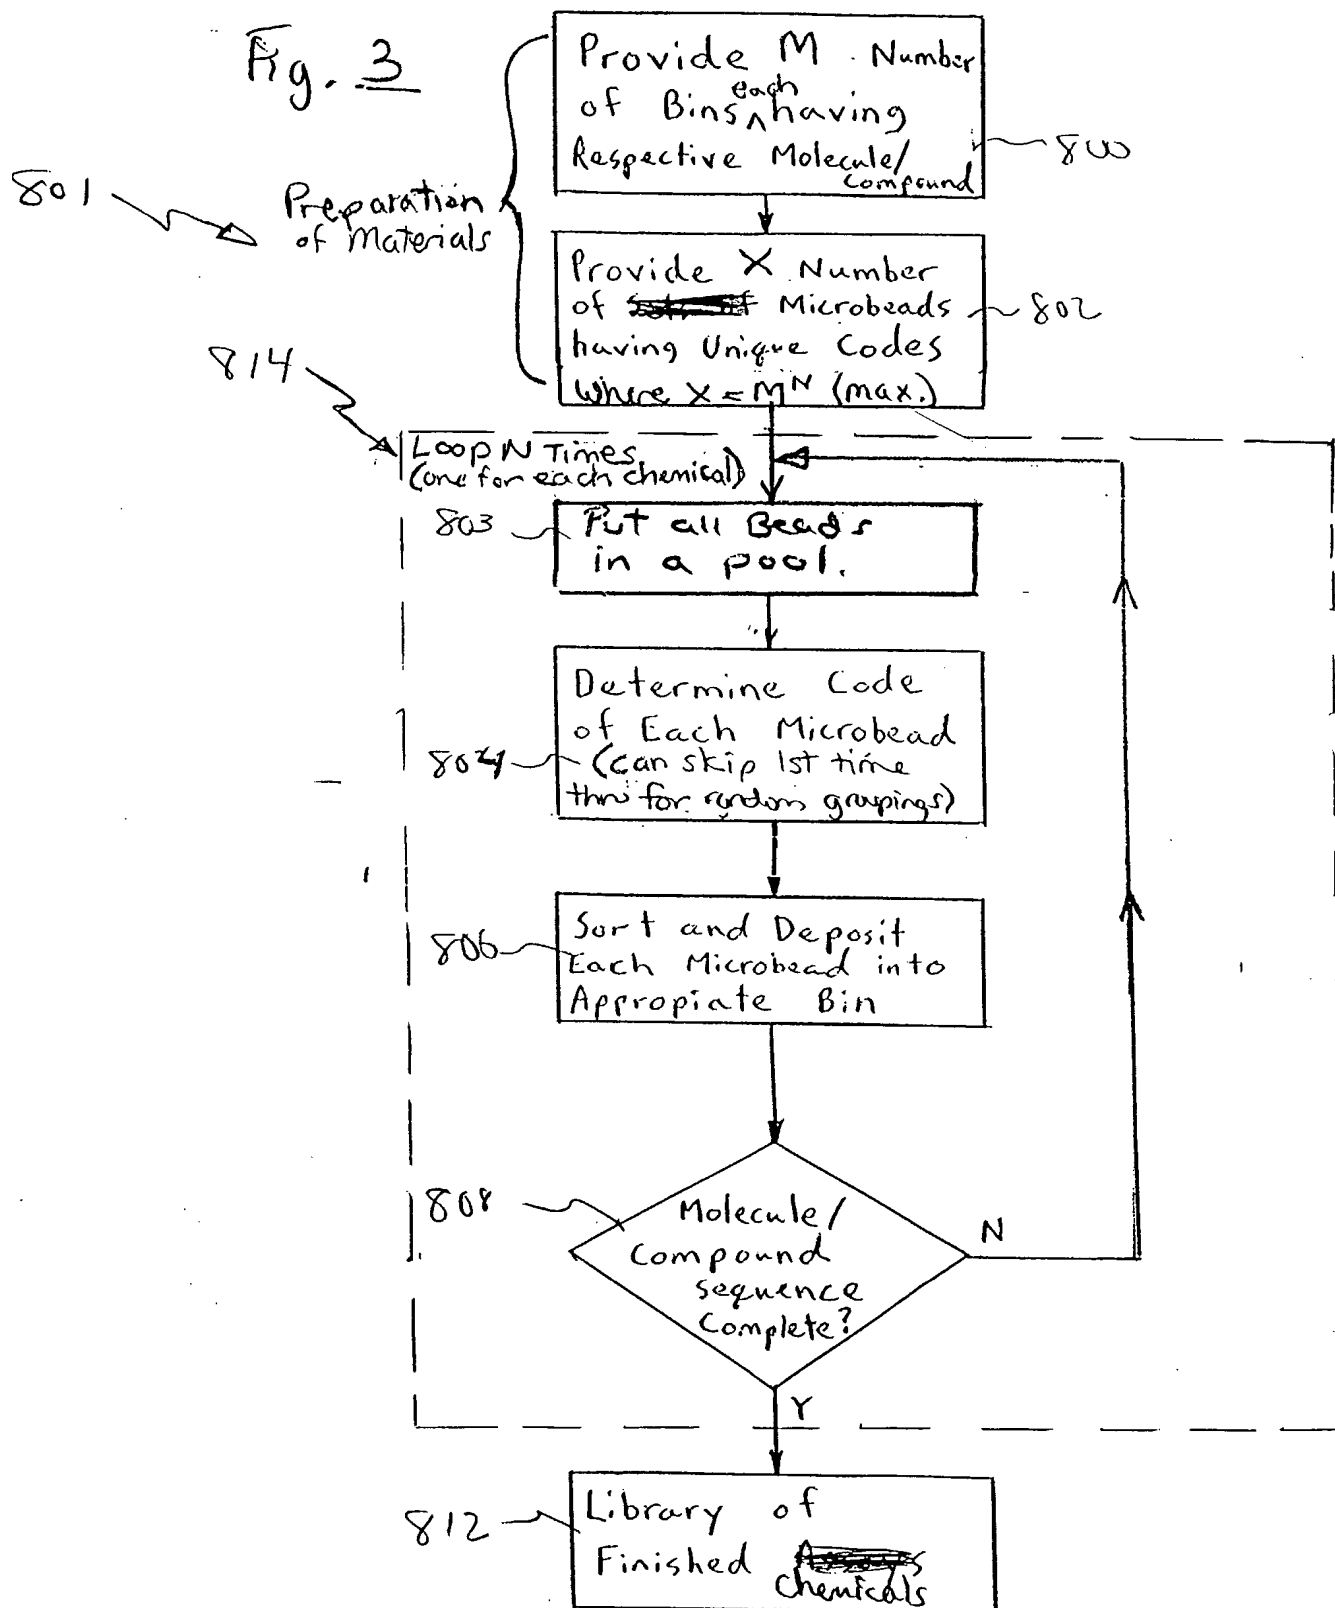 Fig. 3
801
Preparation
of Materials
Provide M Number
of Bins each having
Respective Molecule/
compound
800
Provide X Number
of Microbeads
having Unique Codes
Where X = M^N (max.)
802
814
Loop N Times
(one for each chemical)
803
Put all Beads
in a pool.
Determine Code
of Each Microbead
(can skip 1st time
thru for random groupings)
804
806
Sort and Deposit
Each Microbead into
Appropiate Bin
808
Molecule/
Compound
sequence
Complete?
N
Y
812
Library of
Finished
Chemicals